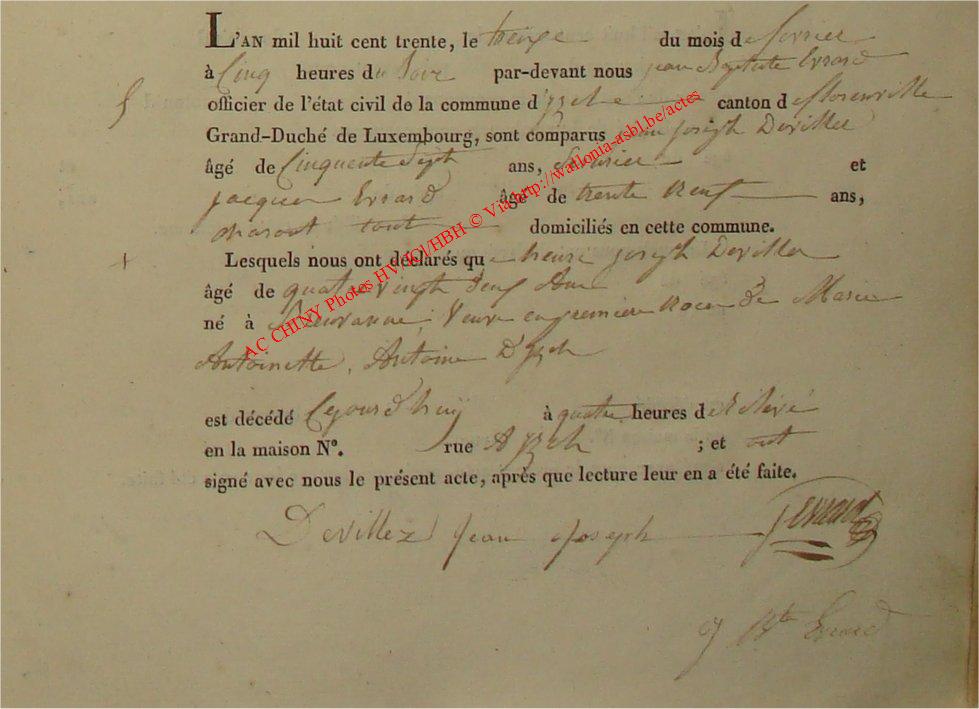 L'AN mil huit cent trente, le treize du mois de fevrier
à Cinq heures du Soir par-devant nous jean Baptiste Evrard
officier de l'état civil de la commune d'yzel canton de florenville
Grand-Duché de Luxembourg, sont comparus jean joseph Deviller
âgé de Cinquente Sept ans, et
jacques Evrard âgé de trente neuf ans,
tout domiciliés en cette commune.
Lesquels nous ont déclarés que joseph Deviller
âgé de quatre Vingth Ans
né à ; Veuve en premiere noce de Marie
Antoinette, Antoine D'yzel
est décédé Cejourd'huÿ à quatre heures de
en la maison N°. rue A yzel ; et ont
signé avec nous le présent acte, après que lecture leur en a été faite.
Devillez jean joseph jevrard
j Bte Evrard
AC CHINY Photos HV/JCl/HBH © Via http://wallonia-asbl.be/actes